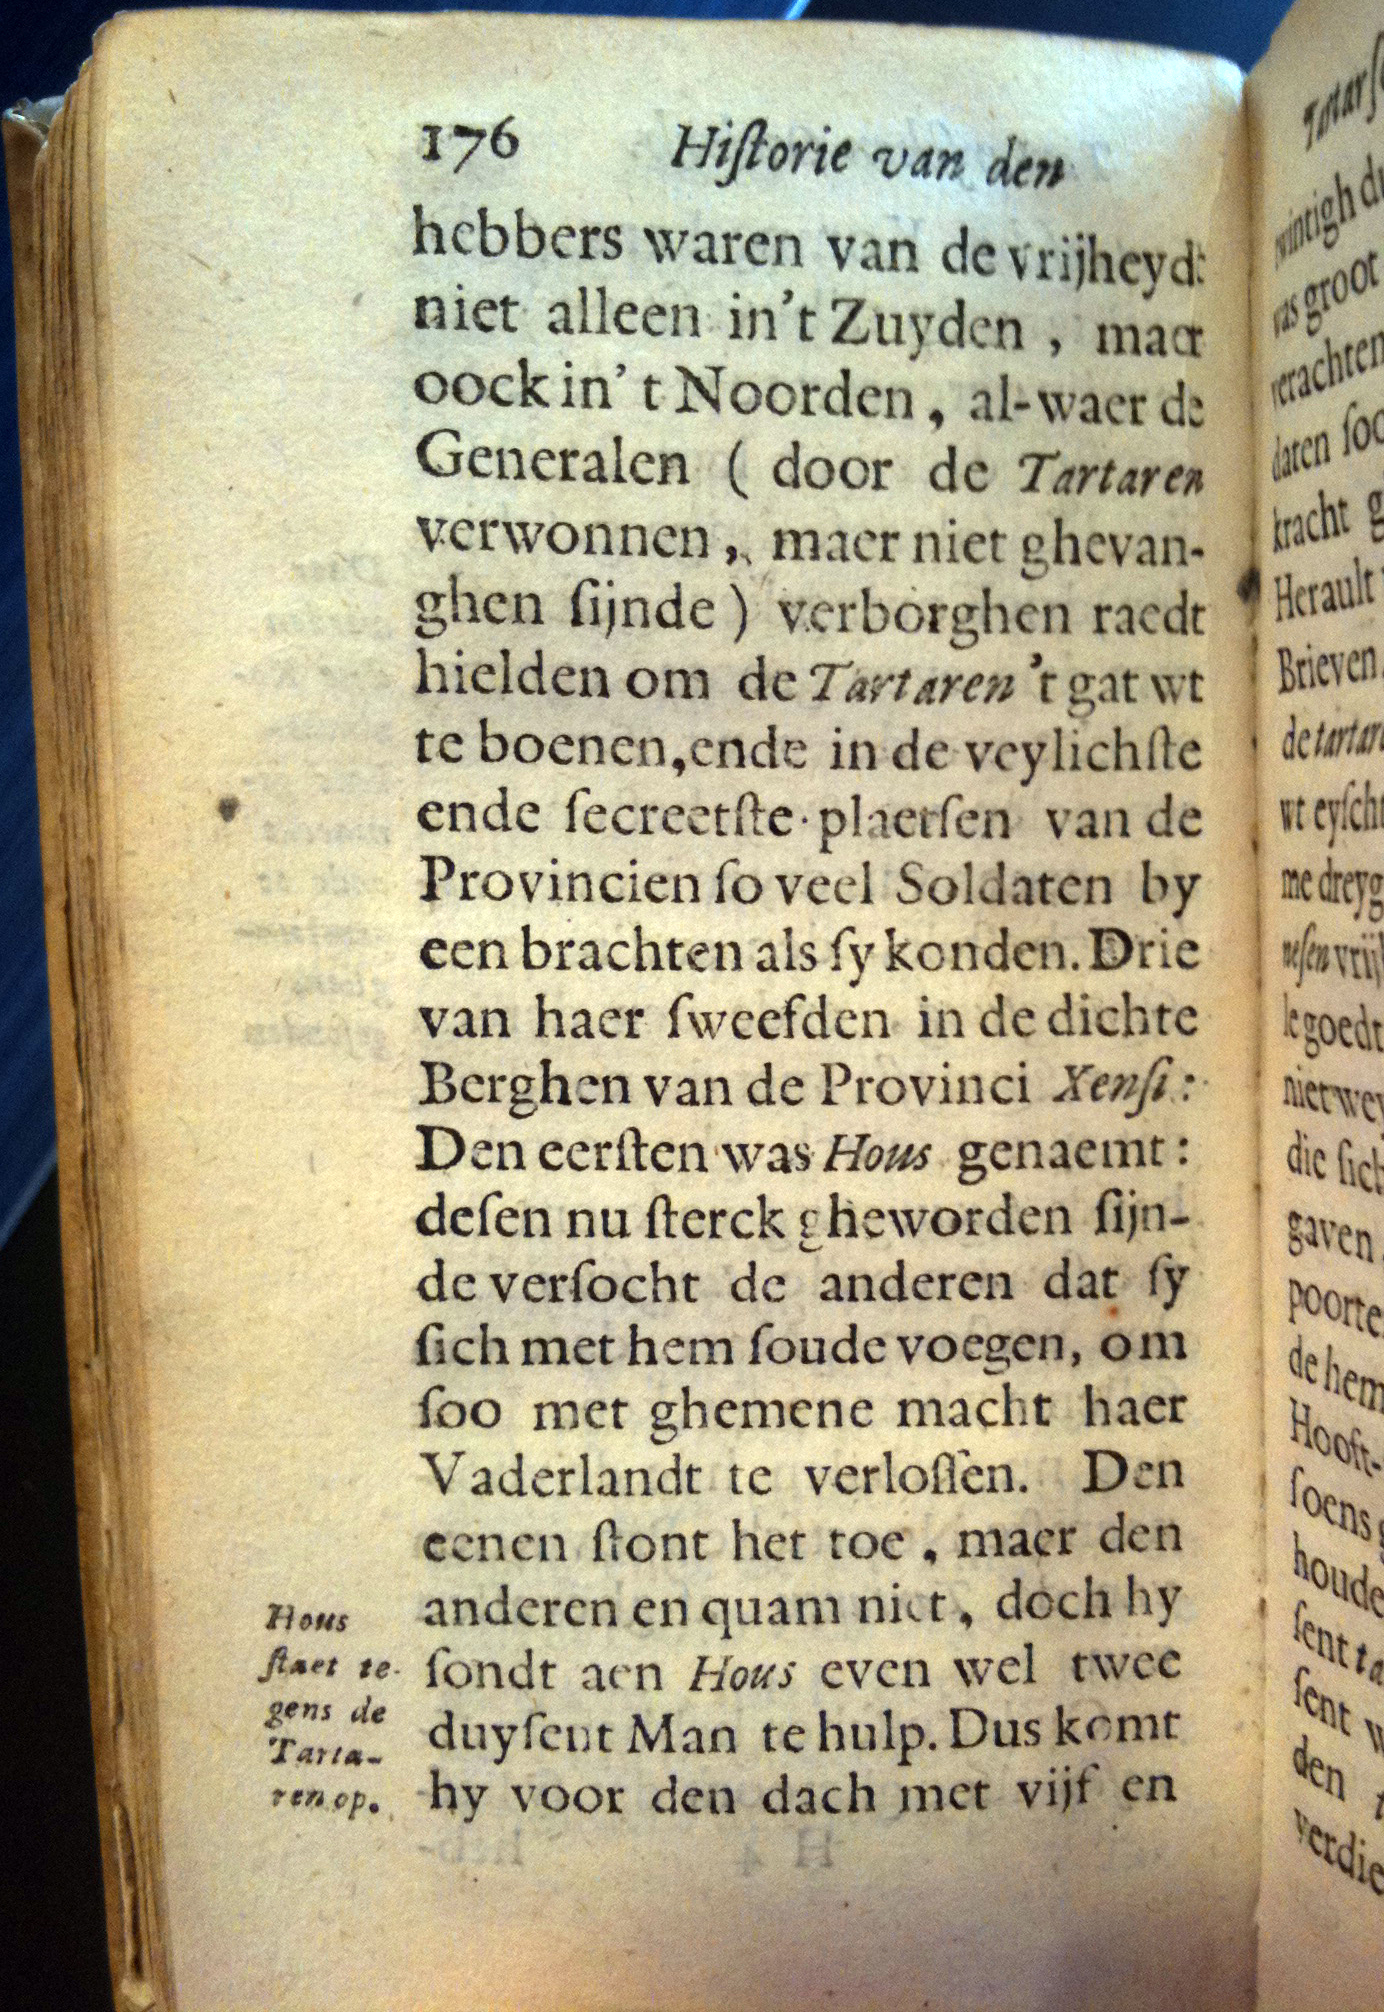 176 Hiſtorie van den
hebbers waren van de vrijheydt
niet alleen in't Zuyden , maer
oock in' t Noorden, al-waer de
Generalen ( door de Tartaren
verwonnen, maer niet ghevan-
ghen ſijnde ) verborghen raedt
hielden om de Tartaren 't gat wt
te boenen, ende in de veylichſte
ende ſecreetſte plaetſen van de
Provincien ſo veel Soldaten by
een brachten als ſy konden. Drie
van haer ſweefden in de dichte
Berghen van de Provinci Xenſi:
Den eerſten was Hous genaemt:
deſen nu ſterck gheworden ſijn-
de verſocht de anderen dat ſy
ſich met hem ſoude voegen, om
ſoo met ghemene macht haer
Vaderlandt te verloſſen. Den
eenen ſtont het toe, maer den
anderen en quam niet, doch hy
ſondt aen Hous even wel twee
duyſent Man te hulp. Dus komt
hy voor den dach met vijf en
Hous
ſtaet te-
gens de
Tarta-
ren op.
Tartarſ
twintigh du
was groot
verachten
daten ſoo
kracht g
Herault
Brieven
de tartar
wt eyſch
me dreyg
neſen vrij
le goedt
niet wey
die ſich
gaven
poorte
de hem
Hooft-
ſoens g
houde
ſent ta
ſent w
den t
verdie